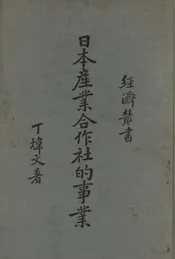 經濟叢書
日本產業合作社的事業
丁煒文著